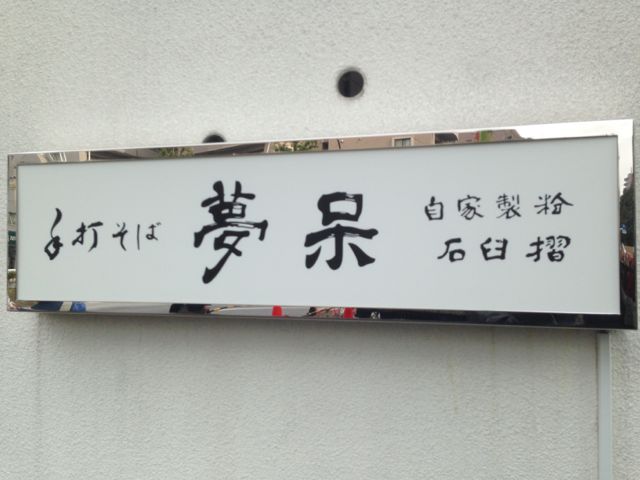 手打そば
夢呆
自家製粉
石臼摺